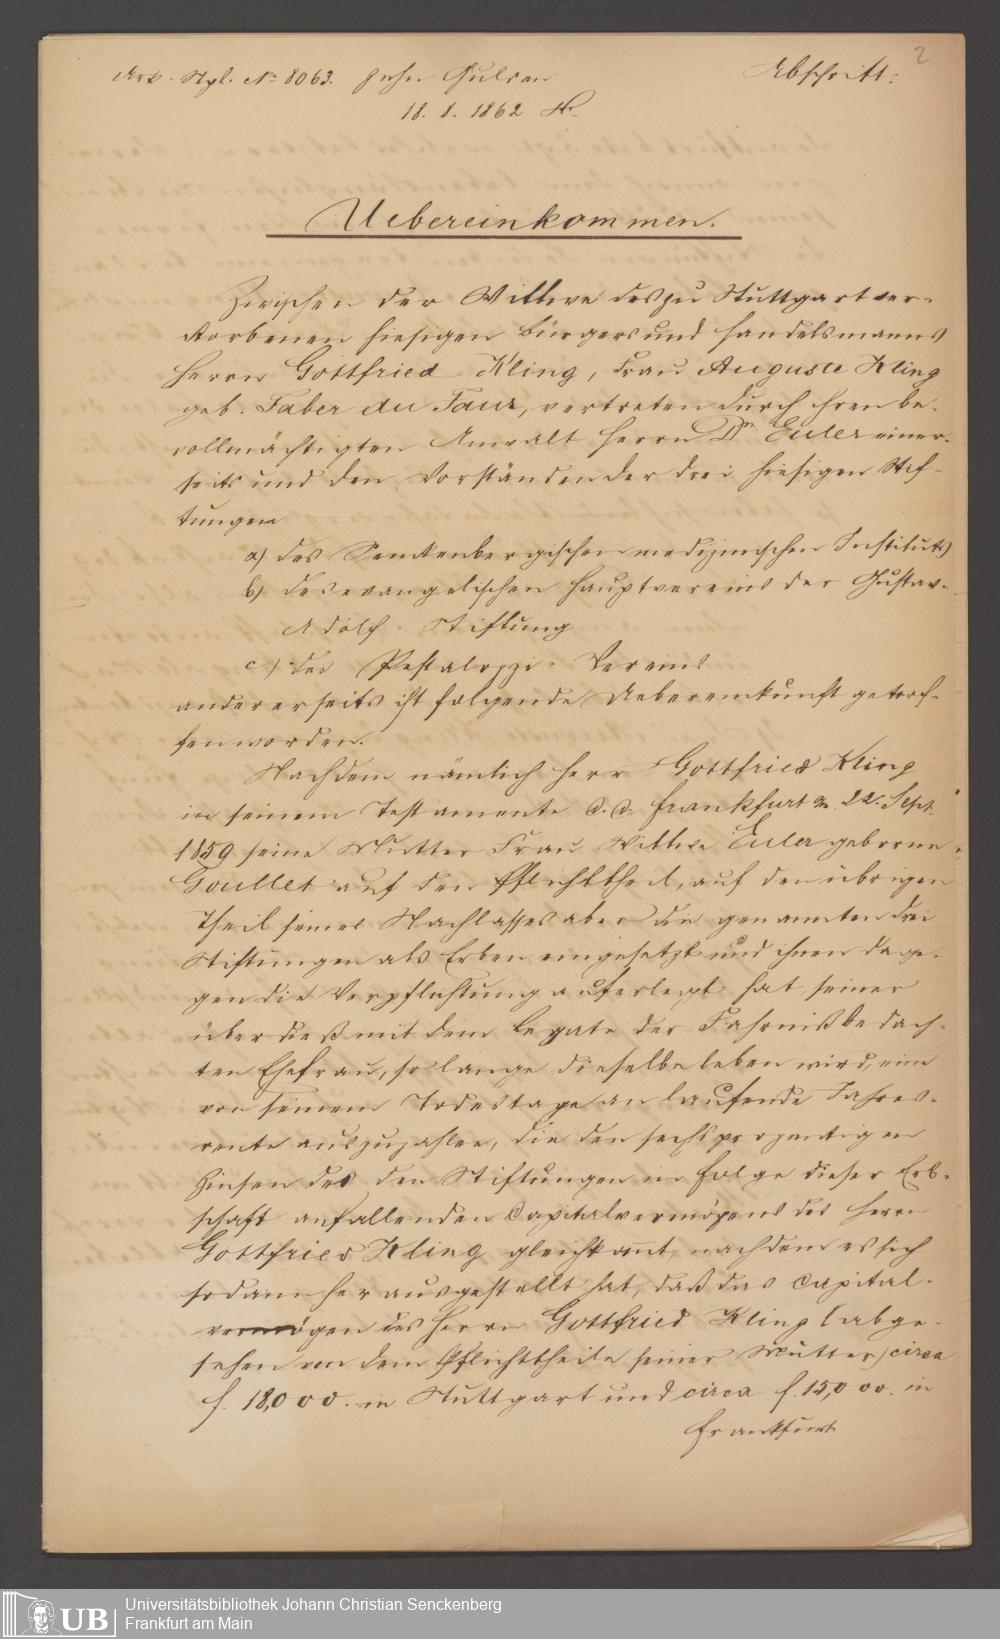 2
Art. Stpl. No 8063. zehn Gulden
Abschrift:
18. 8. 1862
Uebereinkommen.
Zwischen der Wittwe des zu Stuttgart ver-
storbenen hiesigen Bürgers und Handelsmanns
Herrn Gottfried Kling, Frau Auguste Kling
geb. Faber du Faur, vertreten durch ihren be-
vollmächtigten Anwalt Herrn Dr Euler einer-
seits und den Vorständen der drei hiesigen Stif-
tungen
a) des Senckenbergischen medizinischen Instituts
b) des evangelischen Hauptvereins der Gustav-
Adolf-Stiftung
c) des Pestalozzi-Vereins
andererseits ist folgende Uebereinkunft getrof-
fen worden.
Nachdem nämlich Herr Gottfried Kling
in seinem Testamente d. d. Frankfurt 22. Sept.
1859 seine Mutter Frau Wittwe Euler geborne
Goullet auf den Pflichttheil, auf den übrigen
Theil seines Nachlasses aber die genannten drei
Stiftungen als Erben eingesetzt und ihnen dage-
gen die Verpflichtung auferlegt hat seiner
überdieß mit dem Legate der Fahrniß bedach-
ten Ehefrau, so lange dieselbe leben wird, eine
von seinem Todestage an laufende Jahres-
rente auszuzahlen, die den sechsprozentigen
Zinsen des den Stiftungen in Folge dieser Erb-
schaft anfallenden Capitalvermögens des Herrn
Gottfried Kling gleichkomt, nachdem es sich
sodann herausgestellt hat, daß das Capital-
vermögen des Herrn Gottfried Kling (abge-
sehen von dem Pflichttheile seiner Mutter) circa
f. 18,000. in Stuttgart und circa f. 15,000. in
Frankfurt
UB
Universitätsbibliothek Johann Christian Senckenberg
Frankfurt am Main